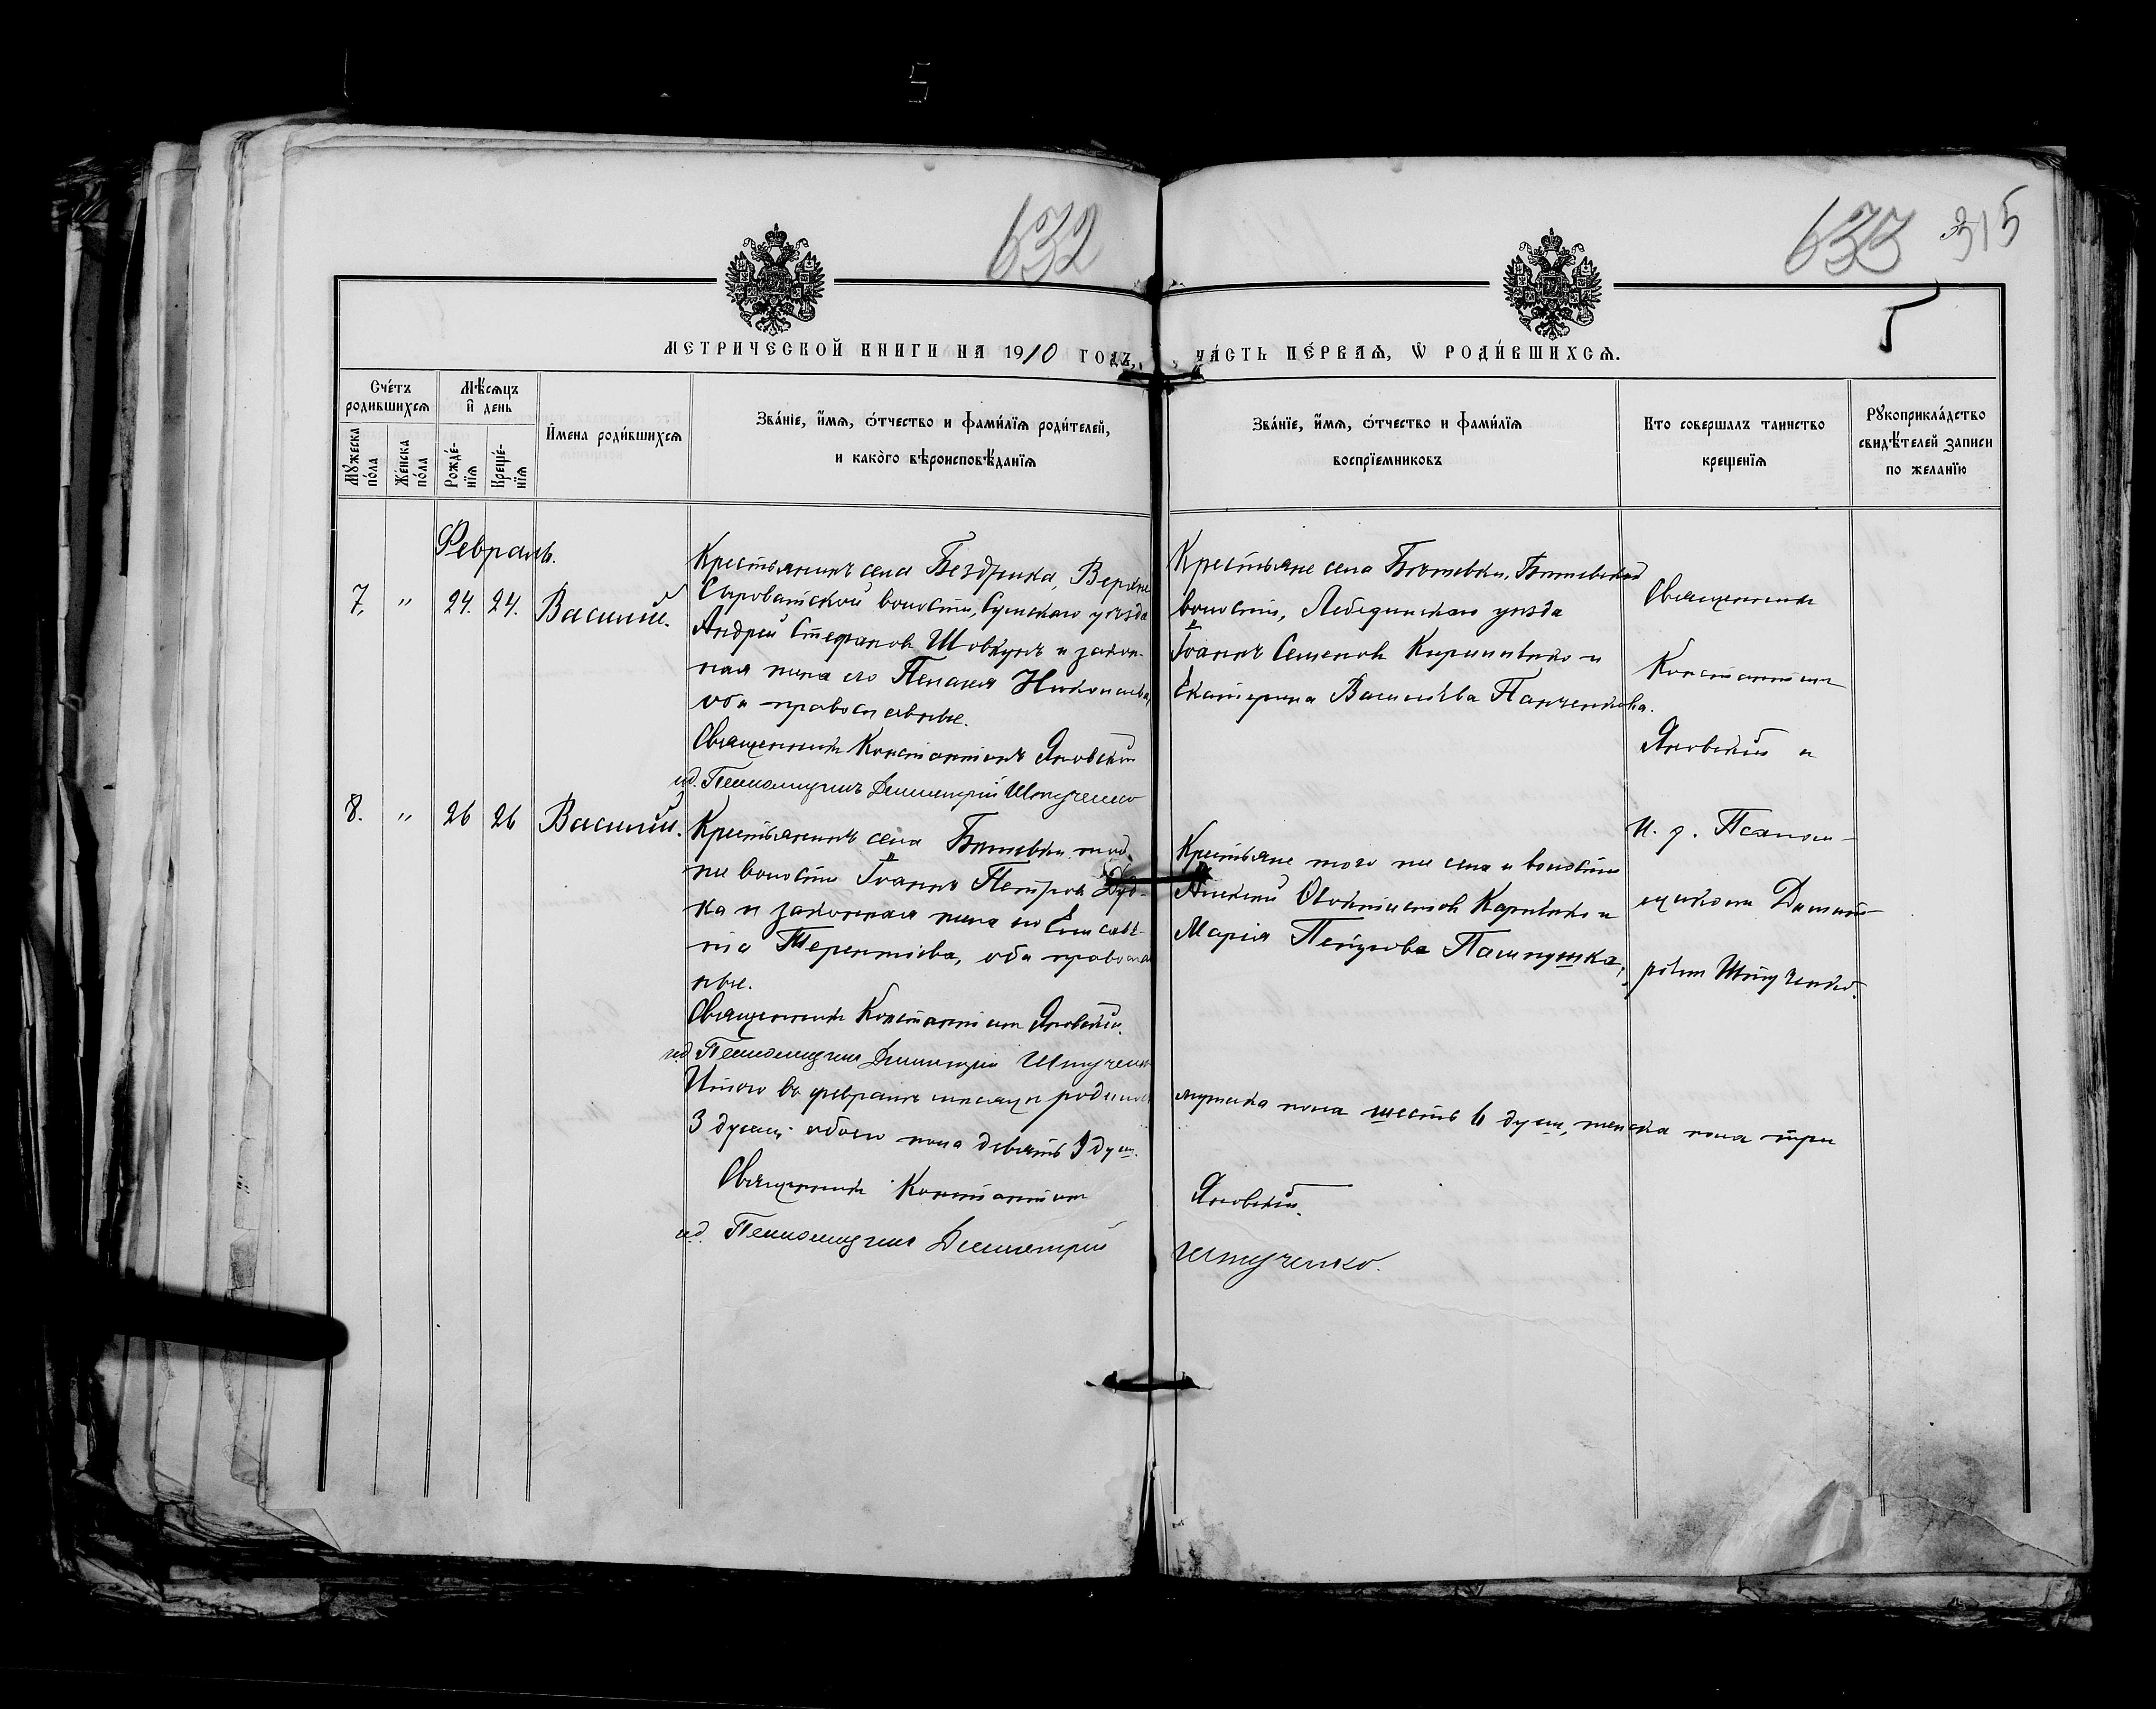 5
632
633 315
5
МЕТРИЧЕСКОЙ КНИГИ НА 1910 ГОДЪ,
ЧА́СТЬ ПЕ́РВАѦ, Ѡ҆ РОДИ́ВШИХСѦ.
Сче́тъ родившихсѧ
Мѣ́сѧцъ и҆ день
И҆мена роди́вшихсѧ
Зва́нїе, и҆́мѧ, ѻ҆́тчество и фами́лїѧ роди́телей,
и како́гѡ вѣроисповѣ́данїѧ
Зва́нїе, и҆́мѧ, ѻ҆́тчество и фами́лїѧ
воспрїемниковъ
Кто совершалъ таинство
крещенїѧ
Рꙋкоприкла́дство
свидѣ́телей записи
по жела́нїю
Мꙋжеска по́ла
Же́нска по́ла
Рожде́нїѧ
Креще́нїѧ
Февраль.
7. " 24. 24. Василій.
Крестьянинъ села Бездрика, Верхне
Сыроватской волости, Сумскаго уѣзда
Андрей Стефановъ Шовкунъ и закон-
ная жена его Пелагія Николаева,
оба православные.
Священникъ Константинъ Яновскій
ид. Псаломщика Димитрій Штученко
Крестьяне села Бѣтевки, Бѣтевской
волости, Лебединскаго уѣзда
Іоаннъ Семеновъ Кириченко и
Екатерина Васильева Панченкова.
Священникъ
Константинъ
Яновскій и
и. д. Псалом-
щикомъ Димит-
ріемъ Штученко.
8. " 26 26 Василій.
Крестьянинъ села Бѣтевки той
же волости Іоаннъ Петровъ Дуд-
ка и законная жена его Елисаве-
та Терентіева, оба православ
ные.
Священникъ Константинъ Яновскій.
ид. Псаломщика Димитрій Штученко
Крестьяне того же села и волости
Алексій Ѳеоктистовъ Карпенко и
Марія Петрова
Итого въ февралѣ мѣсяцѣ родилось
мужска пола шесть 6 душъ, женска пола три
3 души; обоего пола девять 9 душ.
Священникъ Константинъ
Яновскій.
ид. Псаломщика Димитрій
Штученко.